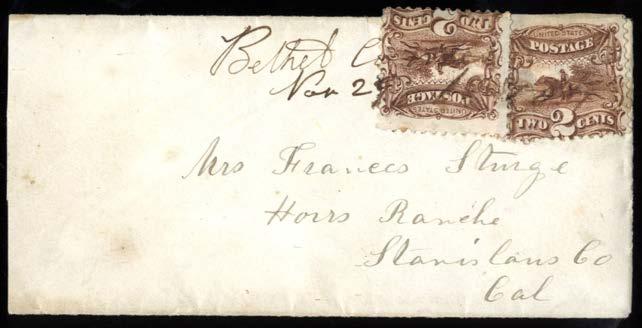 Bethel C
Nov 2
UNITED STATES
POSTAGE
TWO 2 CENTS
UNITED STATES
POSTAGE
TWO 2 CENTS
Mrs Frances Sturge
Horrs Ranche
Stanislaus Co
Cal